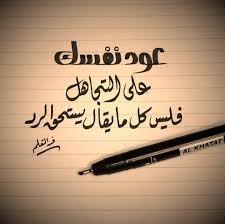 عود نفسك
على التجاهل
فليس كل ما يقال يستحق الرد
فن القلم
AL KHATAT